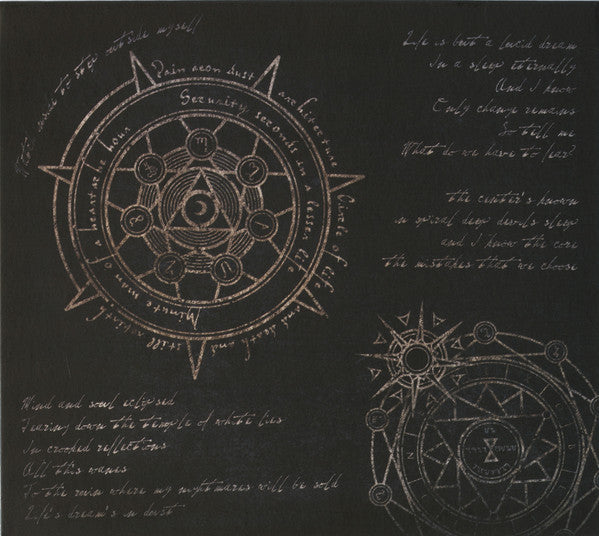 outside myself
Pain aeon dust architecture
Circle of life
and death and still
Security seconds in a lesser life
Minute man of a heartache hour
Life is but a lucid dream
In a sleep eternally
And I know
Only change remains
So tell me
What do we have to fear?
the center's known
in spiral deep devils sleep
and I know the core
the mistakes that we choose
Mind and soul eclipsed
Tearing down the temple of white lies
In crooked reflections
All this wanes
To the ruin where my nightmares will be sold
Life's dream's in dust